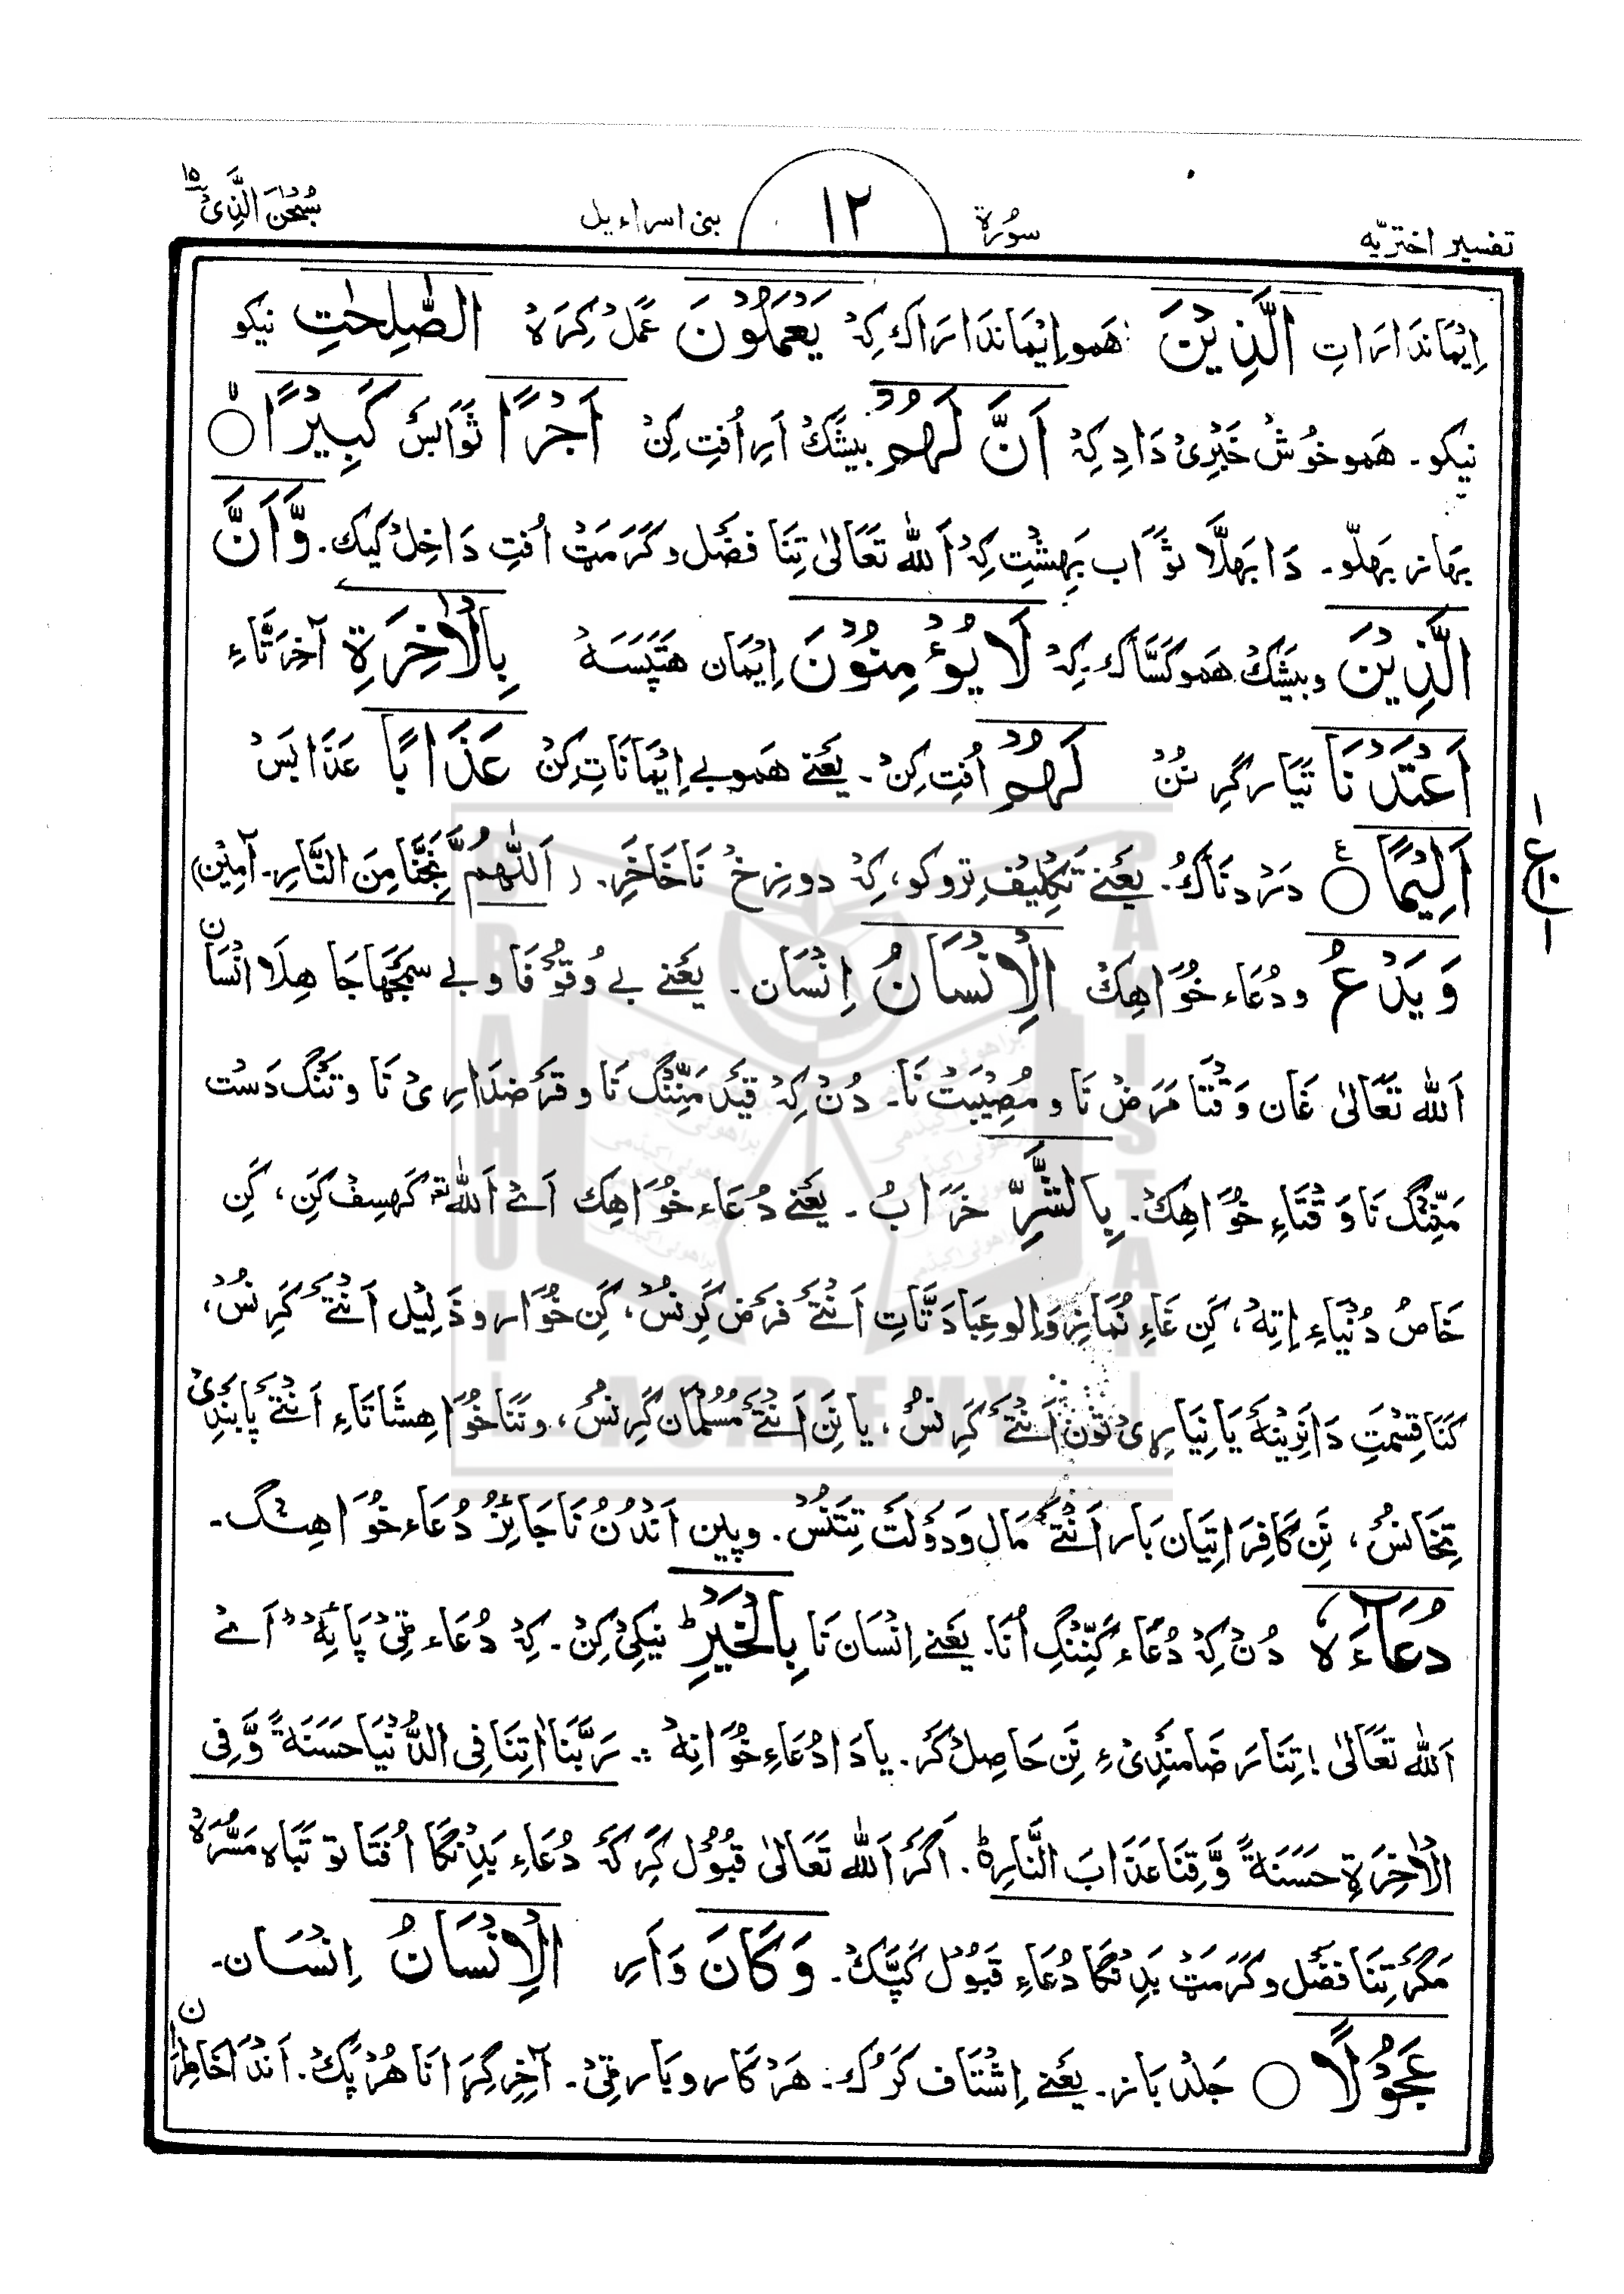 تفسیر اختریّه سُورة ١٢ بنی اسراءیل سُبْحٰنَ الَّذِیْ ١٥
اِیْمَاندَارَاتِ الَّذِیْنَ هَمو اِیْمَاندَارَاک کِہْ یَعْمَلُوْنَ عَمَلْ کِرَہْ الصّٰلِحٰتِ نیکو
نیکو۔ هَمو خُوشْ خَبْرِیْ دَادِ کِہْ اَنَّ لَهُمْ بیشَّکْ اَرِ اُفتِ کِنْ اَجْرًا ثَوَابَسْ کَبِیْرًا ○
بَهَاز بَهلّو۔ دَا بَهلَّا ثَوَاب بَهِشْتِ کِہْ اَللّٰه تَعَالیٰ تِنَا فضَل و کَرَمَتْ اُفتِ دَاخِلْ کیک۔ وَّاَنَّ
الَّذِیْنَ و بیشَّکْ هَمو کَسَّاک کِہْ لَا یُؤْمِنُوْنَ اِیْمَان هَتَپَسَہ بِالْاٰخِرَةِ آخِرَتَّاءِ
اَعْتَدْنَا تَیَار گرِ نَنْ لَهُمْ اُفتِ کِنْ۔ یَعْنے هَمو بے اِیْمَانَاتِ کِنْ عَذَابًا عَذَابَسْ
اَلِیْمًا ○ دَرْدنَاکُ۔ یَعْنے تَکلِیْف تروکو، کِہْ دوزِخْ نَا خَاخَرِ۔ (اَللّٰهُمَّ نَجِّنَا مِنَ النَّارِ۔ آمِیْن)
وَیَدْعُ و دُعَاء خُوَاهِکْ الْاِنْسَانُ اِنْسَان۔ یَعْنے بے وُقُوْفَا و بے سَمَجْهَا جَاهِلَا اِنْسَان
اَللّٰه تَعَالیٰ غَان وَقْتَا مَرَضْ نَا و مُصِیْبَتْ نَا۔ دُنْ کِہْ قَیْد مَنِّنْگ نَا و قَرْضدَارِیْ نَا و تَنْگ دَسْت
مَنِّنْگ نَا وَقْتَاءِ خُوَاهِکْ۔ بِالشَّرِّ خَرَابُ۔ یَعْنے دُعَاء خُوَاهِک اَےْ اَللّٰهُ کَهسِفْ کَنِ، کَنِ
خَاصْ دُنْیَاءِ اِتِہْ، کَنِ غَاءِ نُمَاز وَاِلو عِبَادَتَّاتِ اَنْتےَ فَرَض کَرِنُسْ، کَنِ خُوَار و ذَلِیْل اَنْتےَ کَرِنُسْ،
کَنَا قِسْمَتِ دَا نِزِیْنَہ یَا نِیَارِیْ تُوْن اَنْتےَ کَرِنُسْ، یا نَنِ اَنْتےَ مُسُلْمَان کَرِنُسْ، و تَنَا خُوَاهِشَاتَاءِ اَنْتےَ پَابَنْدِیْ
تِخَانُسْ، نَنِ کَافِرَاتِیَان بَار اَنْتےَ مَال وَ دَوْلَتْ تِتَنُسْ۔ و پِین اَنْدُنْ نَاجَائِزُ دُعَاء خُوَاهِنْگ۔
دُعَآءَہٗ دُنْ کِہْ دُعَاء کَنِّنْگ اُنَا۔ یَعْنے اِنْسَان نَا بِالْخَیْرِ ط نیکِیْ کِنْ۔ کِہْ دُعَاء ٹِیْ پَائِہْ اَےْ
اَللّٰه تَعَالیٰ! تِنَا رَضَامَنْدِیْ ءِ نَنِ حَاصِلْ کَر۔ یا دَا دُعَاءِ خُوَانِہْ :۔ رَبَّنَا اٰتِنَا فِی الدُّنْیَا حَسَنَةً وَّفِی
الْاٰخِرَةِ حَسَنَةً وَّقِنَا عَذَابَ النَّارِ ط۔ اَگَر اَللّٰه تَعَالیٰ قَبُوْل کَرِکَہ دُعَاءِ بَدِنْگَا اُفتَا تو تَبَاہ مَسُّرَہْ
مَگَر تِنَا فضَل و کَرَمَتْ بَدِنْگَا دُعَاءِ قَبُوْل کَپَّک۔ وَکَانَ وَ اَرِ الْاِنْسَانُ اِنْسَان۔
عَجُوْلًا ○ جَلْد بَاز۔ یَعْنے اِشْتَاف کَرُک۔ هَرْ کَار و بَار ٹِیْ۔ آخِر گِرَا نَا هُرْپَکْ۔ اَنْدَا خَاطِرَان